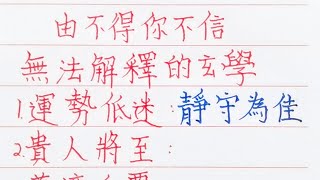 由不得你不信
無法解釋的玄學
1.運勢低迷:靜守為佳
2.貴人將至: